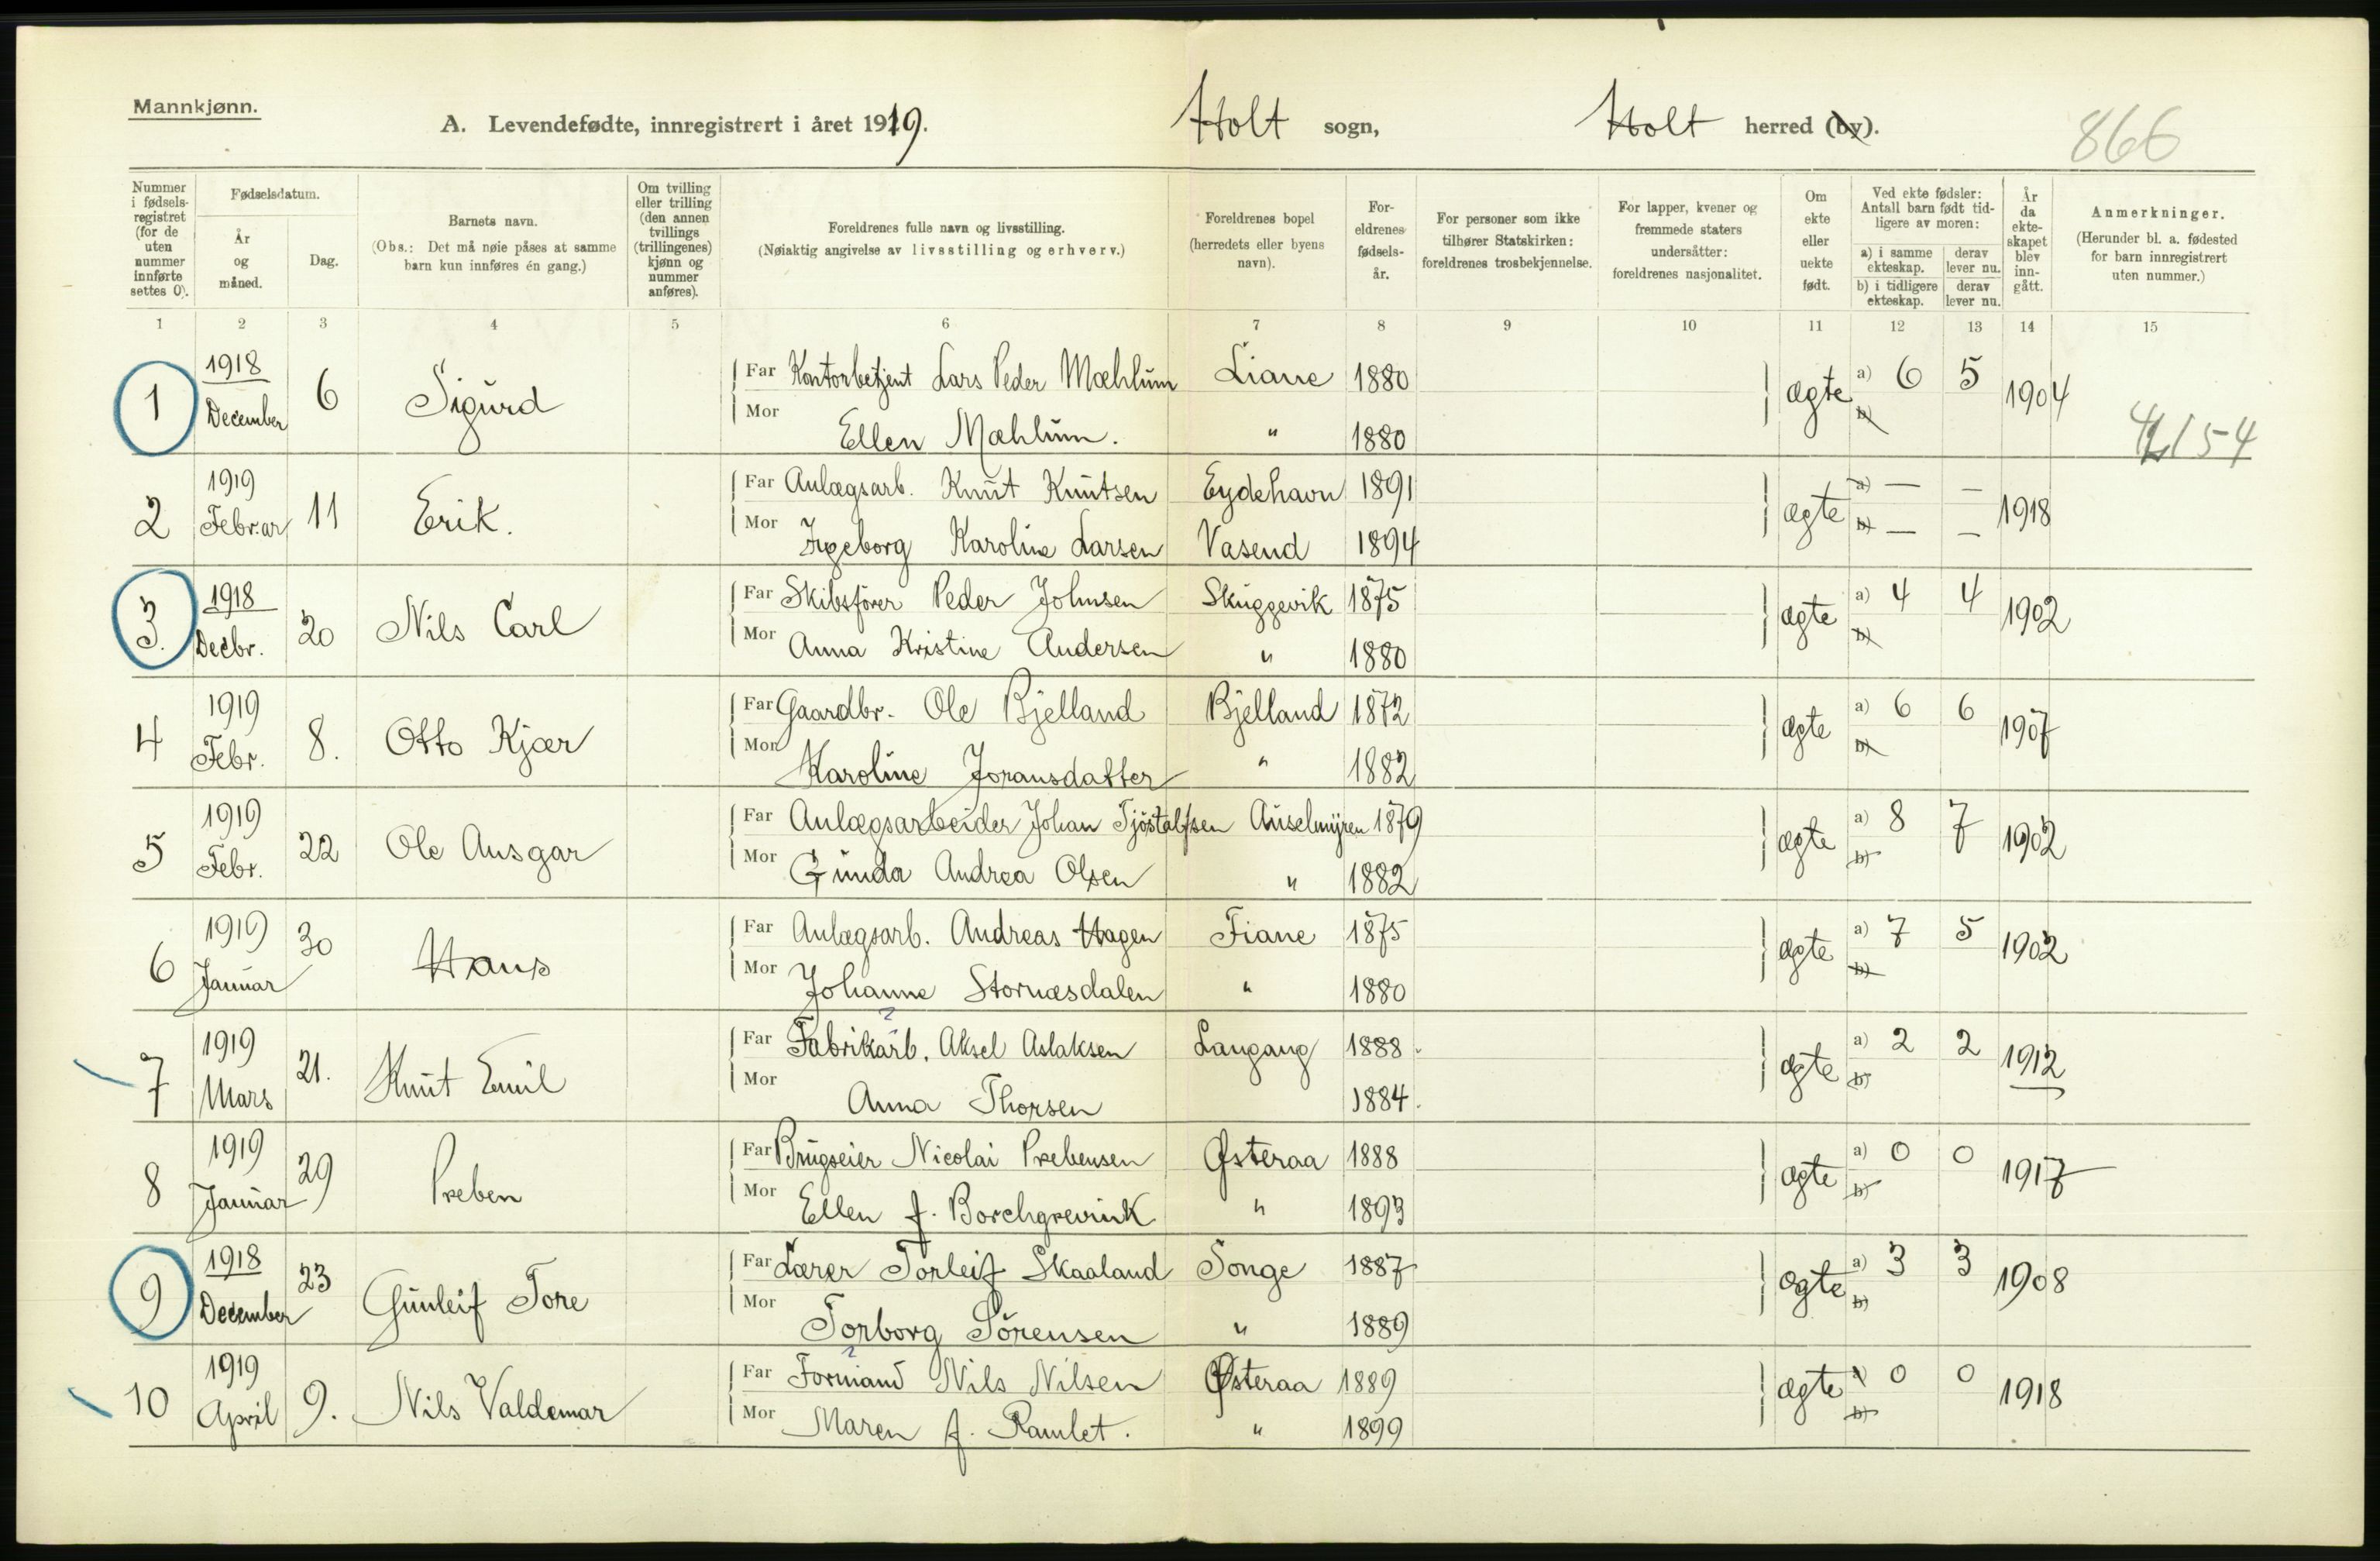 Mannkjønn.
A. Levendefødte, innregistrert i året 1919. Holt sogn, Holt herred (by). 866
Nummer i fødselsregistret (for de uten nummer innførte settes 0).
Fødselsdatum.
År og måned.
Dag.
Barnets navn.
(Obs.: Det må nøie påses at samme barn kun innføres én gang.)
Om tvilling eller trilling (den annen tvillings (trillingenes) kjønn og nummer anføres).
Foreldrenes fulle navn og livsstilling.
(Nøiaktig angivelse av livsstilling og erhverv.)
Foreldrenes bopel (herredets eller byens navn).
Foreldrenes fødselsår.
For personer som ikke tilhører Statskirken: foreldrenes trosbekjennelse.
For lapper, kvener og fremmede staters undersåtter: foreldrenes nasjonalitet.
Om ekte eller uekte født.
Ved ekte fødsler: Antall barn født tidligere av moren:
a) i samme ekteskap. derav lever nu.
b) i tidligere ekteskap. derav lever nu.
År da ekteskapet blev inngått.
Anmerkninger.
(Herunder bl. a. fødested for barn innregistrert uten nummer.)
1 2 3 4 5 6 7 8 9 10 11 12 13 14 15
1 1918 December 6 Sigurd Far Kontorbetjent Lars Peder Mæhlum Liane 1880 ægte a) 6 5 1904
Mor Ellen Mæhlum. " 1880 b)
2 1919 Februar 11 Erik. Far Anlægsarb. Knut Knutsen Eydehavn 1891 ægte a) — — 1918
Mor Ingeborg Karoline Larsen Vasend 1894 b) — —
3. 1918 Decbr. 20 Nils Carl Far Skibsfører Peder Johnsen Skuggevik 1875 ægte a) 4 4 1902
Mor Anna Kristine Andersen " 1880 b)
4 1919 Febr. 8. Otto Kjær Far Gaardbr. Ole Bjelland Bjelland 1872 ægte a) 6 6 1907
Mor Karoline Joransdatter " 1882 b)
5 1919 Febr. 22 Ole Ansgar Far Anlægsarbeider Johan Tjöstolfsen Auselmyren 1879 ægte a) 8 7 1902
Mor Gunda Andrea Olsen " 1882 b)
6 1919 Januar 30 Hans Far Anlægsarb. Andreas Hagen Fiane 1875 ægte a) 7 5 1902
Mor Johanne Stornæsdalen " 1880 b)
7 1919 Mars 21. Knut Emil Far Fabrikarb. Aksel Aslaksen Langang 1888 ægte a) 2 2 1912
Mor Anna Thorsen 1884. b)
8 1919 Januar 29 Preben Far Brugseier Nicolai Prebensen Østeraa 1888 ægte a) 0 0 1917
Mor Ellen f. Borchgrevink " 1893 b)
9 1918 December 23 Gunleif Tore Far Lærer Torleif Skaaland Songe 1887 ægte a) 3 3 1908
Mor Torborg Sörensen " 1889 b)
10 1919 April 9. Nils Valdemar Far Formand Nils Nilsen Østeraa 1889 ægte a) 0 0 1918
Mor Maren f. Ramlet. " 1899 b)